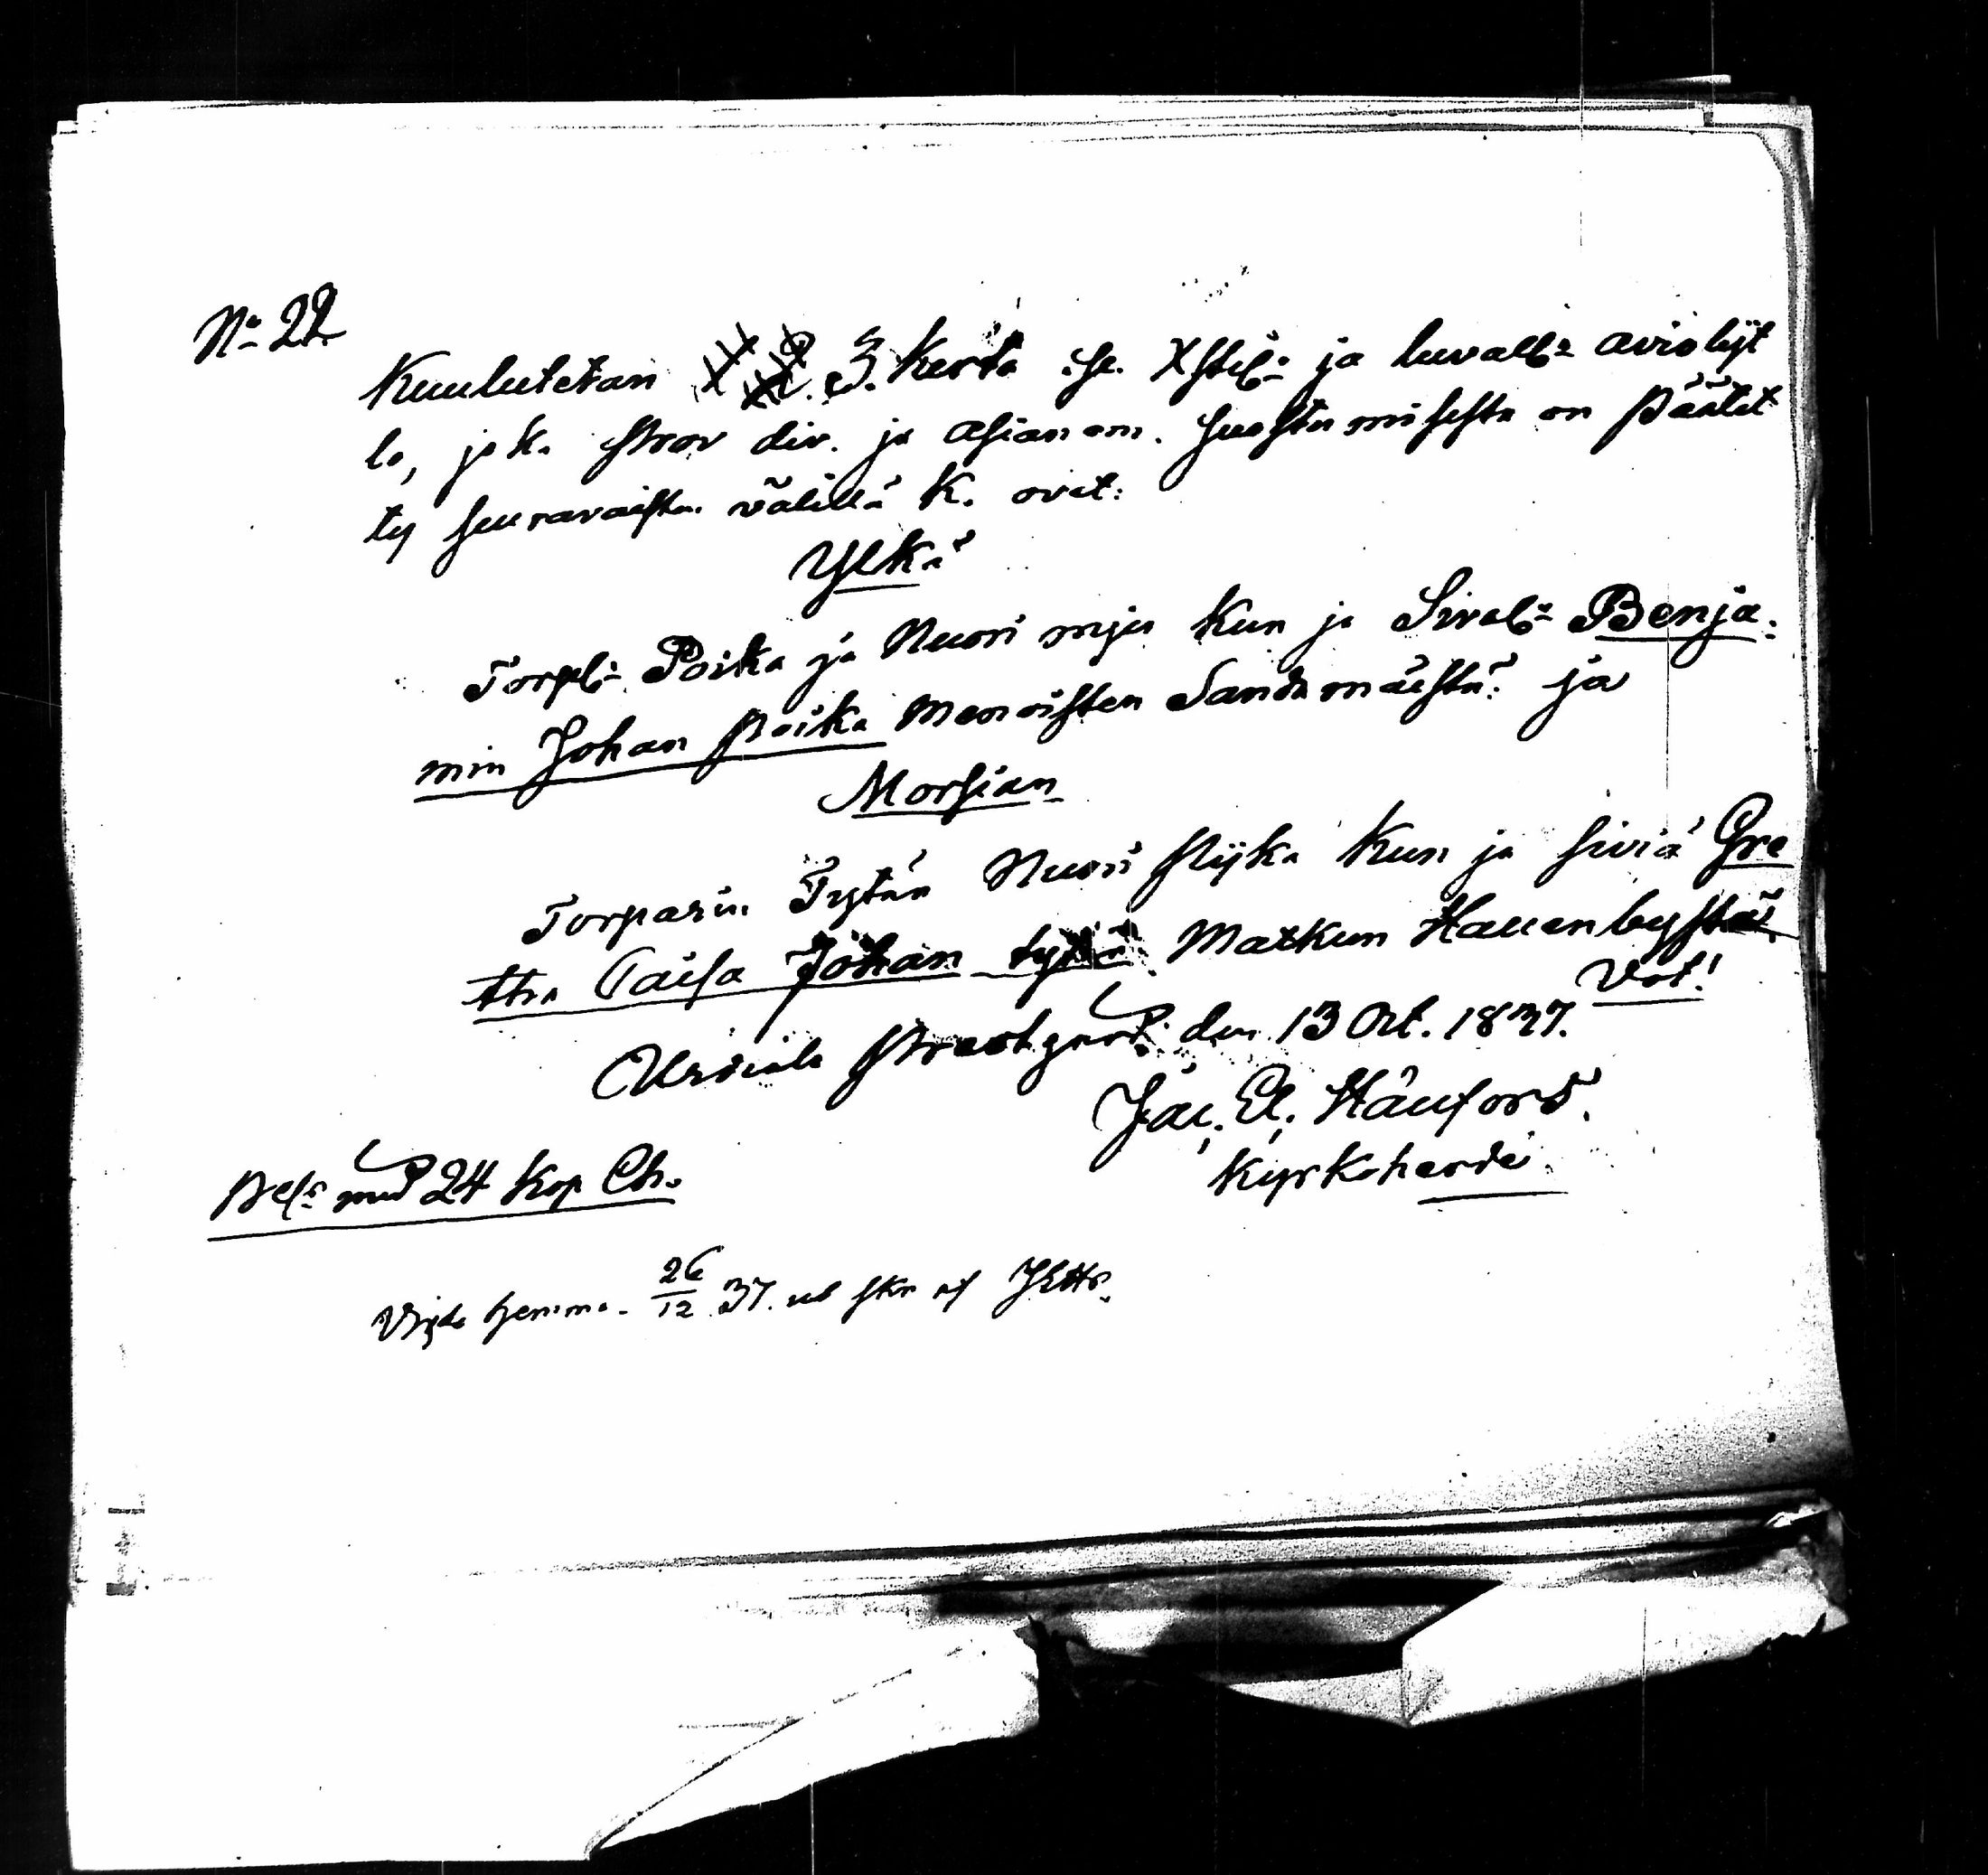 No 22
Kuulutetan 3. Kerta se. Xstil: ja luvall: aviolijt
to, joka prov div. ja asianom. suostumisesta on päätet
ty seuravaisten välillä K. ovat:
Ylkä
Torpb: Poika ja Nuori mjes Kun ja Sivel: Benja:
min Johan poika Menoisten Sandamäestä: ja
Morsian
Torparin Tytär Nuori pijka Kun ja siviä Gre
tha Caisa Johan tytär Matkun Hauenbystä
Vot!
Urdiala Prestgård den 13 Oct. 1837.
Jac. El. Häufors.
Kyrkoherde.
med 24 Kop Ch.
Vigde hemma. 26/12 37. af